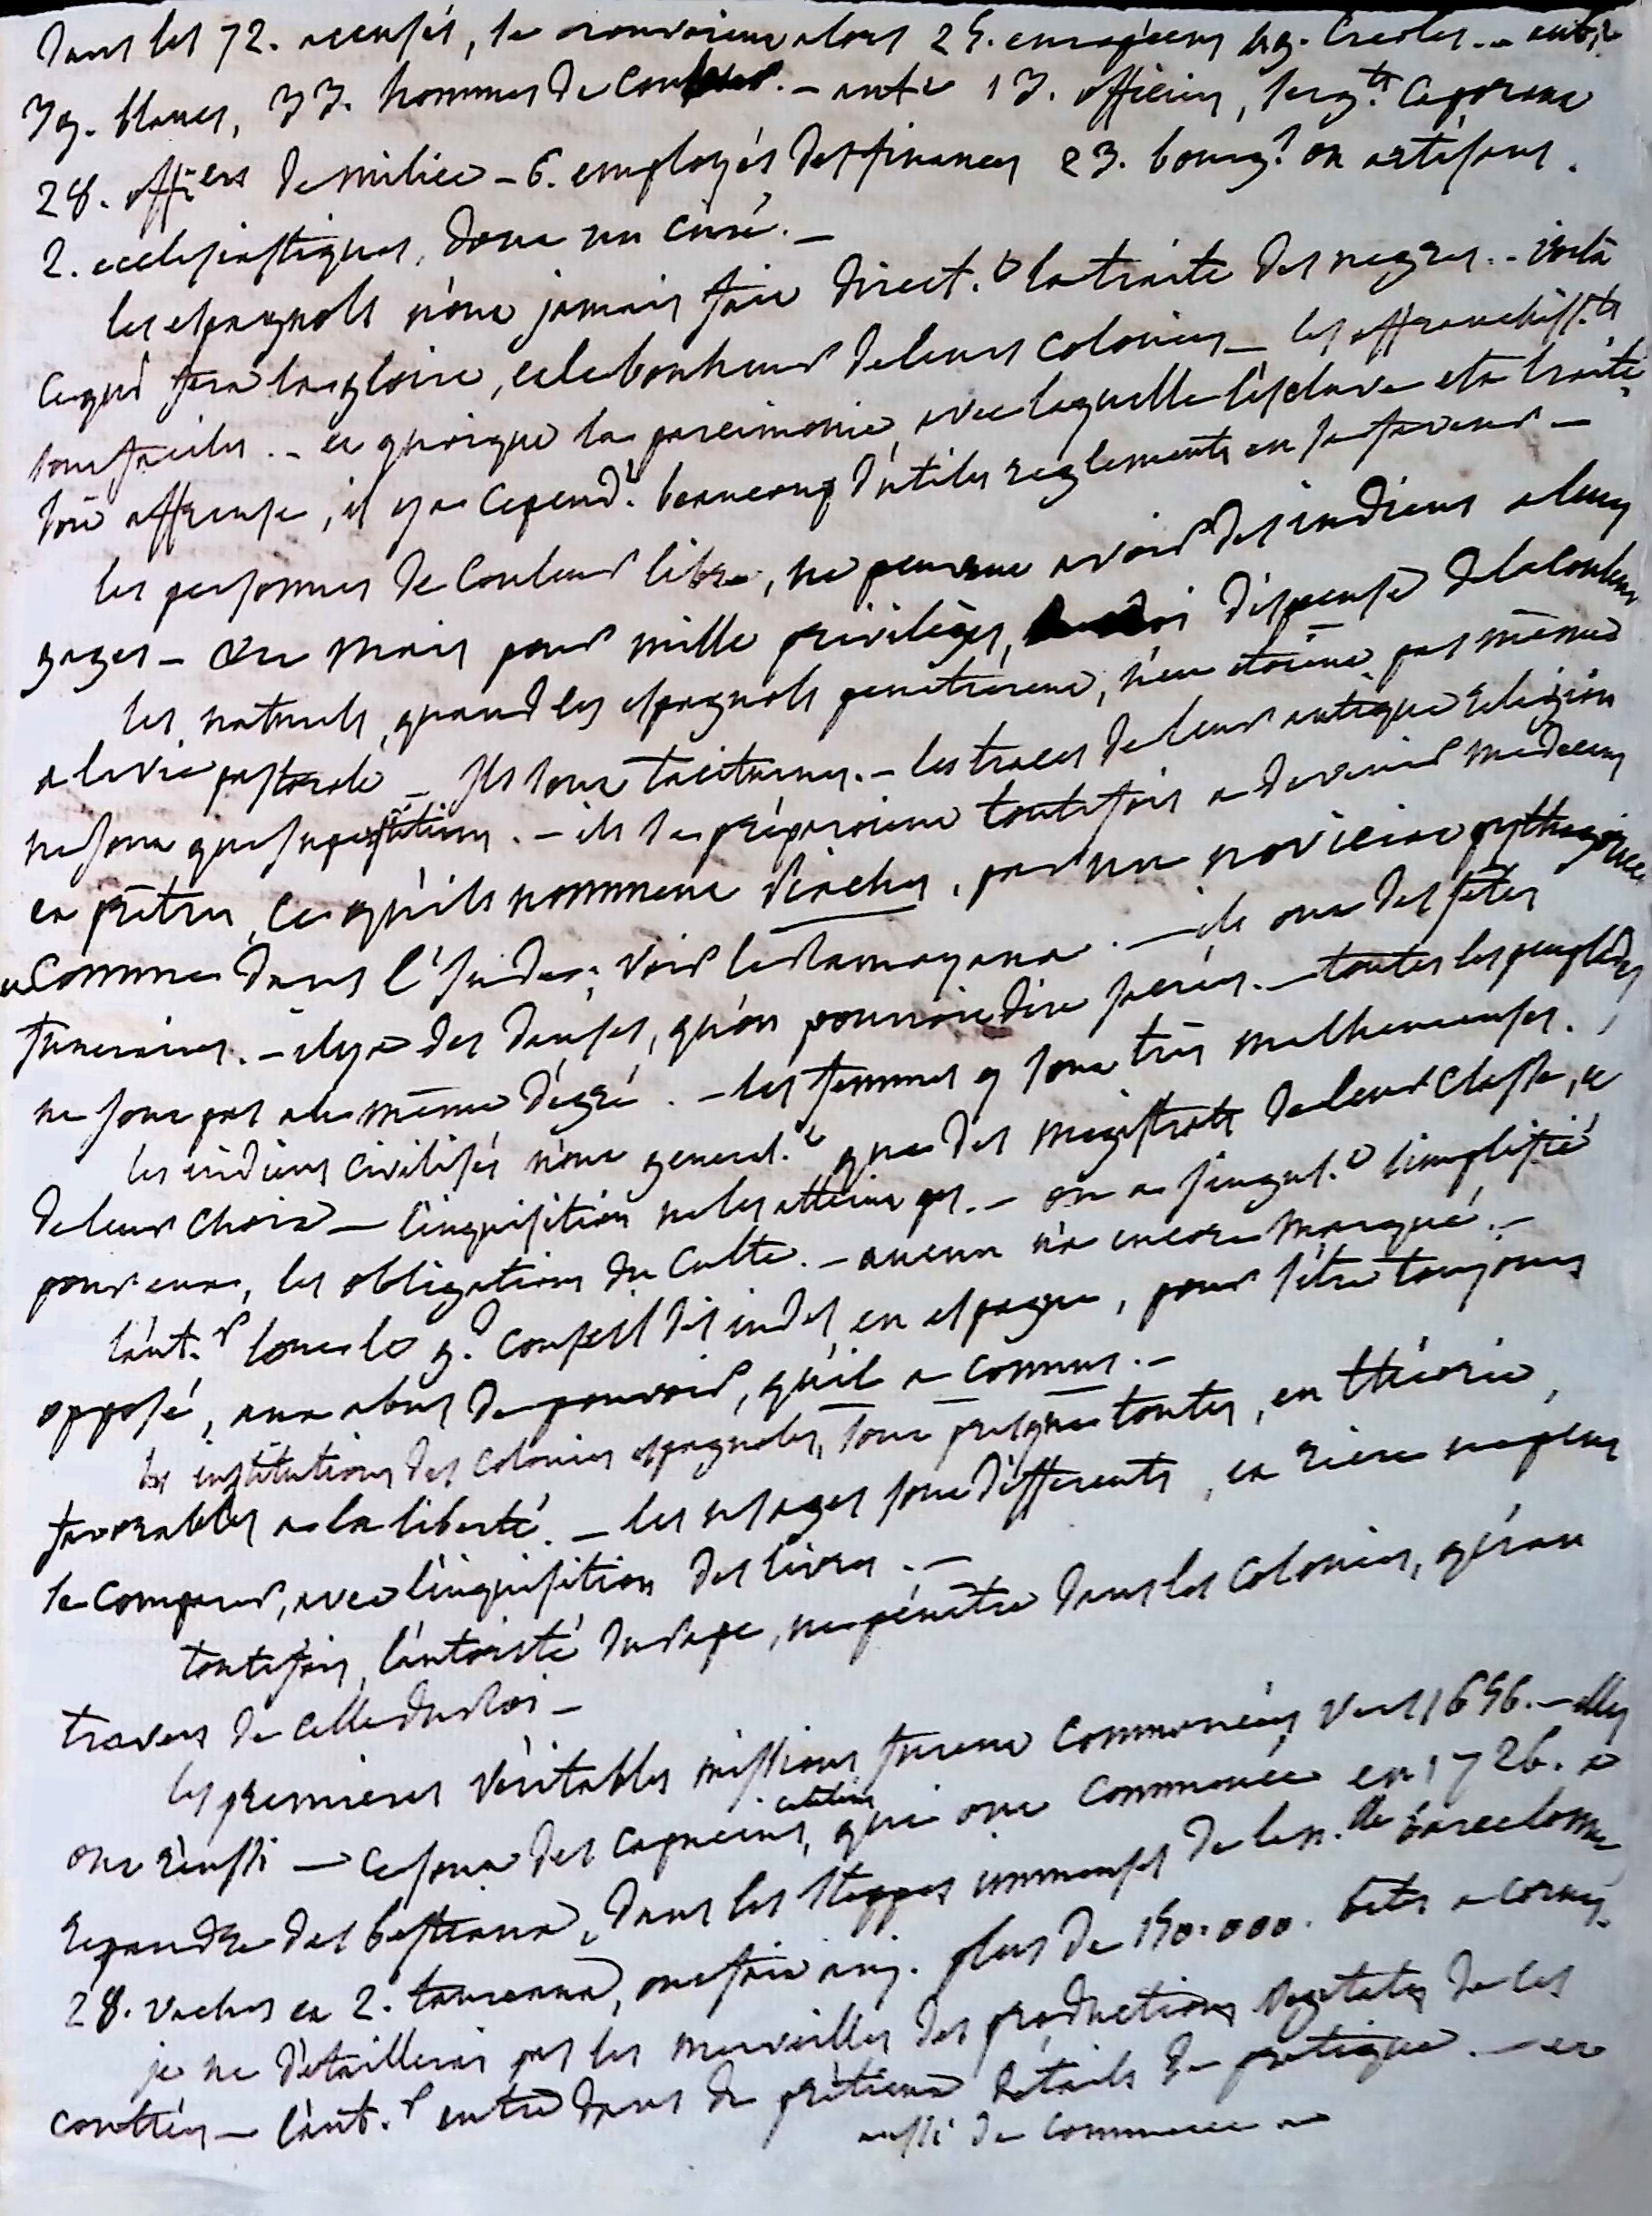 Dans les 72. accusés, se trouvoient alors 25. européens 49. Creoles... entre
39. blancs, 33. hommes de Couleur. - entre 13. officiers, serg.ts Caporaux
28. offiers de milice - 6. employés des finances 23. bourg.s ou artisans.
2. ecclesiastiques, dont un curé. -
les espagnols n'ont jamais fait direct.t la traite des negres... voila
ce qui fera la gloire, et le bonheur de leurs colonies - les affranchiss.ts
sont faciles. - et quoique la parcimonie, avec laquelle l'esclave est traité
soit affreuse, il y a cepend.t beaucoup d'utiles reglements en sa faveur -
les personnes de Couleur libre, ne peuvent avoir des indiens a leurs
gages - mais pour mille privilèges, dispense de la couleur
les naturels, quand les espagnols penetrèrent, n'en etoient pas même
a la vie pastorale - Ils sont taciturnes. - les traces de leur antique religion
ne sont que superstitions. - ils se préparoient toutefois a devenir medecins
et prêtres, ce qu'ils nomment Piaches, par un noviciat pythagoricien
Comme dans l'Inde; voir le Ramayana. - ils ont des fêtes
funeraires. - il y a des danses, qu'on pourroit dire sacrées. - toutes les peuplades
ne sont pas au même dégré. - les femmes y sont très malheureuses.
les indiens civilisés n'ont general.t que des magistrats de leur classe, et
de leur choix - l'inquisition ne les atteint pas. - on a singul.t simplifié
pour eux, les obligations du Culte. - aucun n'a encore marqué. -
l'aut.r loue le g.d Conseil des indes, en espagne, pour s'être toujours
opposé, aux abus de pouvoir, qu'il a connus. -
les institutions des colonies espagnoles, sont presque toutes, en théorie,
favorables a la liberté. - les usages sont differents, et rien ne peut
se comparer, avec l'inquisition des livres. -
toutefois, l'autorité du Pape, ne pénètre dans les Colonies, qu'au
travers de celle du Roi -
les premieres véritables missions furent commencées vers 1656. - elles
ont réussi - ce sont des capucins, qui ont commencé en 1726. a
repandre des bestiaux, dans les steppes immenses de la n.lle barcelonne
28. vaches et 2. taureaux, ont fait auj. plus de 150.000. betes a cornes.
je ne détaillerai pas les merveilles des productions vegetales de ces
contrées - l'aut.r entre dans de prétieux details de pratique. - et
aussi de commerce -